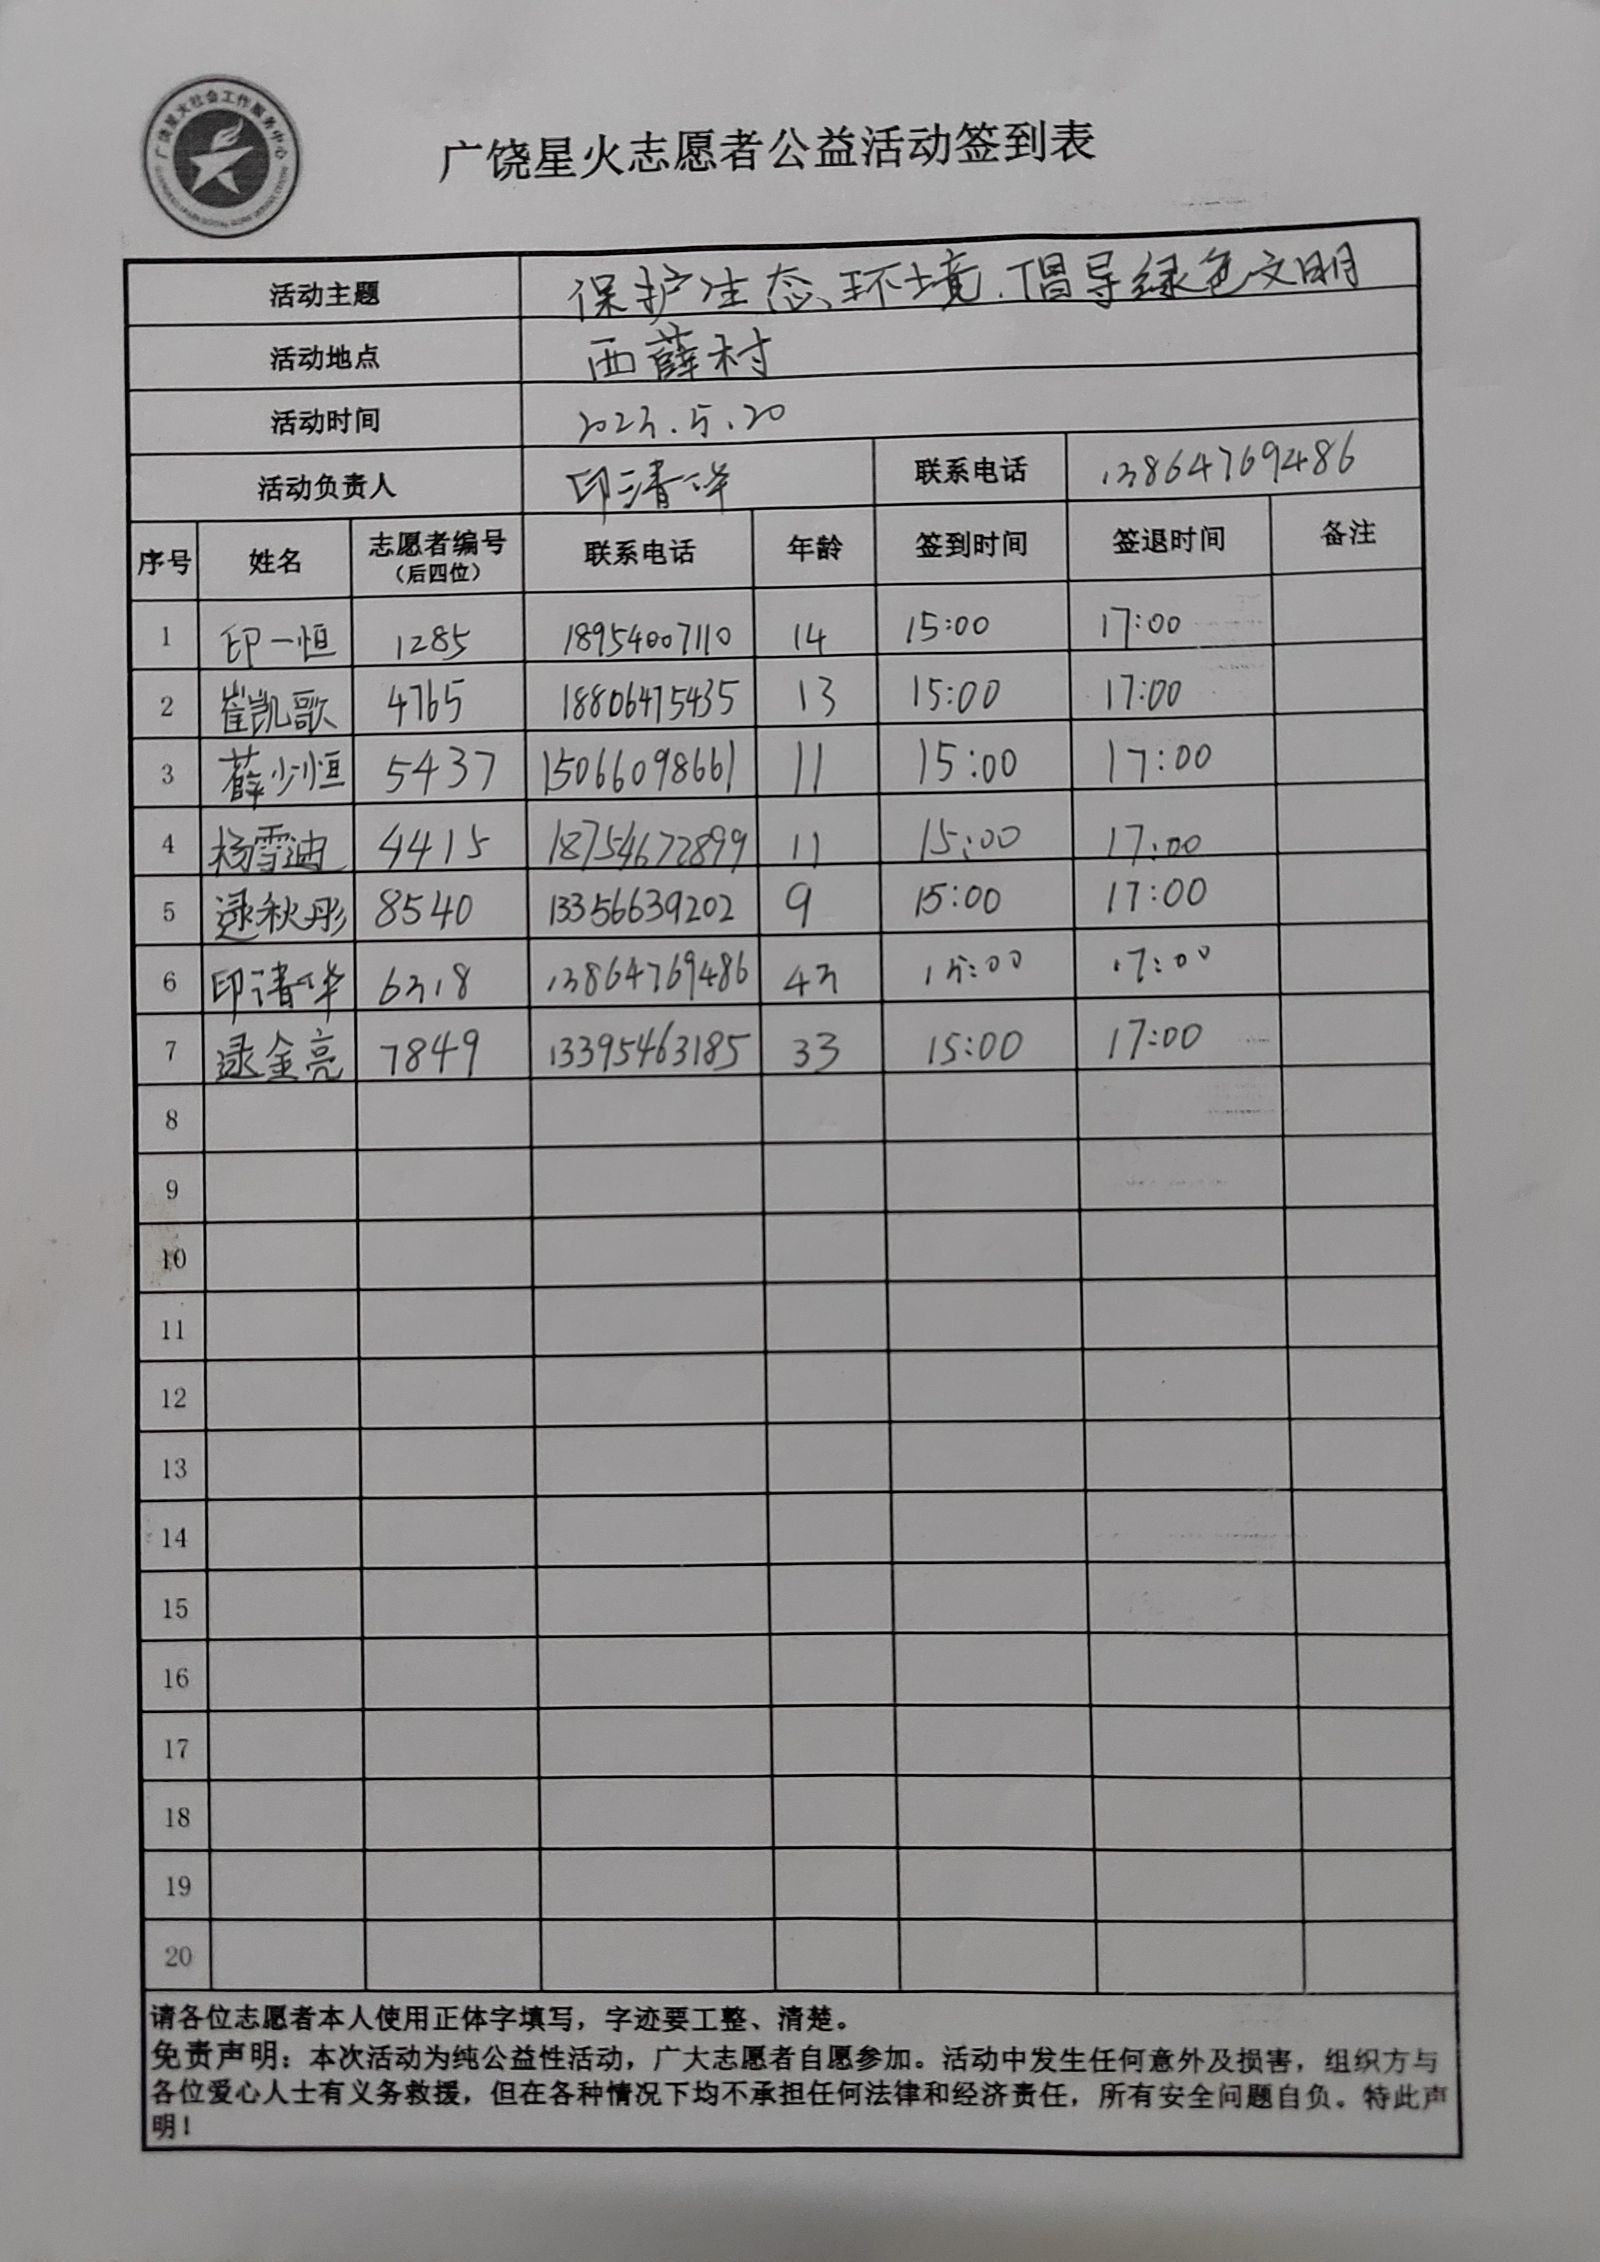 广饶星火社会工作服务中心
广饶星火志愿者公益活动签到表
活动主题 保护生态环境、倡导绿色文明
活动地点 西薛村
活动时间 2023.5.20
活动负责人 印清华 联系电话 13864769486
序号 姓名 志愿者编号（后四位） 联系电话 年龄 签到时间 签退时间 备注
1 印一恒 1285 18954007110 14 15:00 17:00
2 崔凯歌 4765 18806475435 13 15:00 17:00
3 薛少恒 5437 15066098661 11 15:00 17:00
4 杨雪迪 4415 18754672899 11 15:00 17:00
5 逯秋彤 8540 13356639202 9 15:00 17:00
6 印清华 6318 13864769486 43 15:00 17:00
7 逯金亮 7849 13395463185 33 15:00 17:00
8
9
10
11
12
13
14
15
16
17
18
19
20
请各位志愿者本人使用正体字填写，字迹要工整、清楚。
免责声明：本次活动为纯公益性活动，广大志愿者自愿参加。活动中发生任何意外及损害，组织方与
各位爱心人士有义务救援，但在各种情况下均不承担任何法律和经济责任，所有安全问题自负。特此声
明！